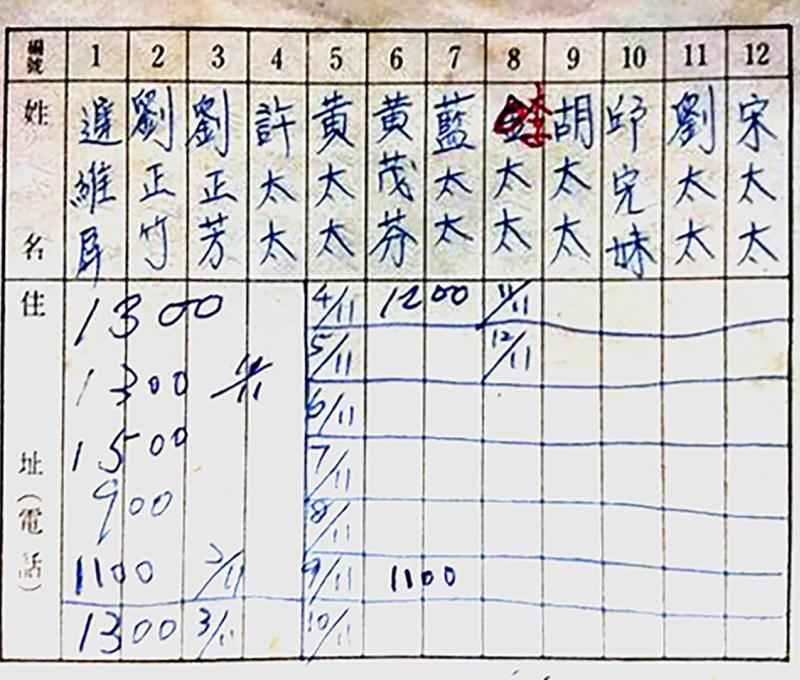 編號 1 2 3 4 5 6 7 8 9 10 11 12
姓名 維 劉正竹 劉正芳 許太太 黃太太 黃茂芬 藍太太 太太 胡太太 邱兄妹 劉太太 宋太太
住址(電話)
1300 4/11 1200 11/11
1300 5/11 12/11
1500 6/11
900 7/11
8/11
1100 2/11 9/11 1100
1300 3/11 10/11